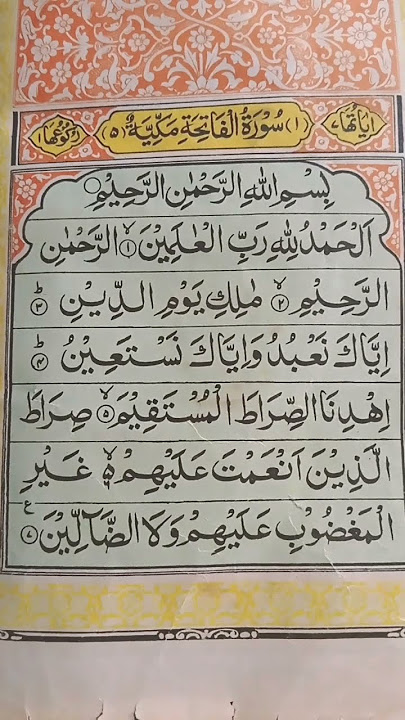 اٰيَاتُهَا ٧ (١) سُوْرَةُ الْفَاتِحَةِ مَكِّيَّةٌ (٥) رُكُوْعُهَا ١
بِسْمِ اللهِ الرَّحْمٰنِ الرَّحِيْمِ
اَلْحَمْدُ لِلّٰهِ رَبِّ الْعٰلَمِيْنَ ۙ﴿١﴾ الرَّحْمٰنِ
الرَّحِيْمِ ۙ﴿٢﴾ مٰلِكِ يَوْمِ الدِّيْنِ ؕ﴿٣﴾
اِيَّاكَ نَعْبُدُ وَاِيَّاكَ نَسْتَعِيْنُ ؕ﴿٤﴾
اِهْدِنَا الصِّرَاطَ الْمُسْتَقِيْمَ ۙ﴿٥﴾ صِرَاطَ
الَّذِيْنَ اَنْعَمْتَ عَلَيْهِمْ ۙ۬ غَيْرِ
الْمَغْضُوْبِ عَلَيْهِمْ وَلَا الضَّآلِّيْنَ ﴿٧﴾ ع